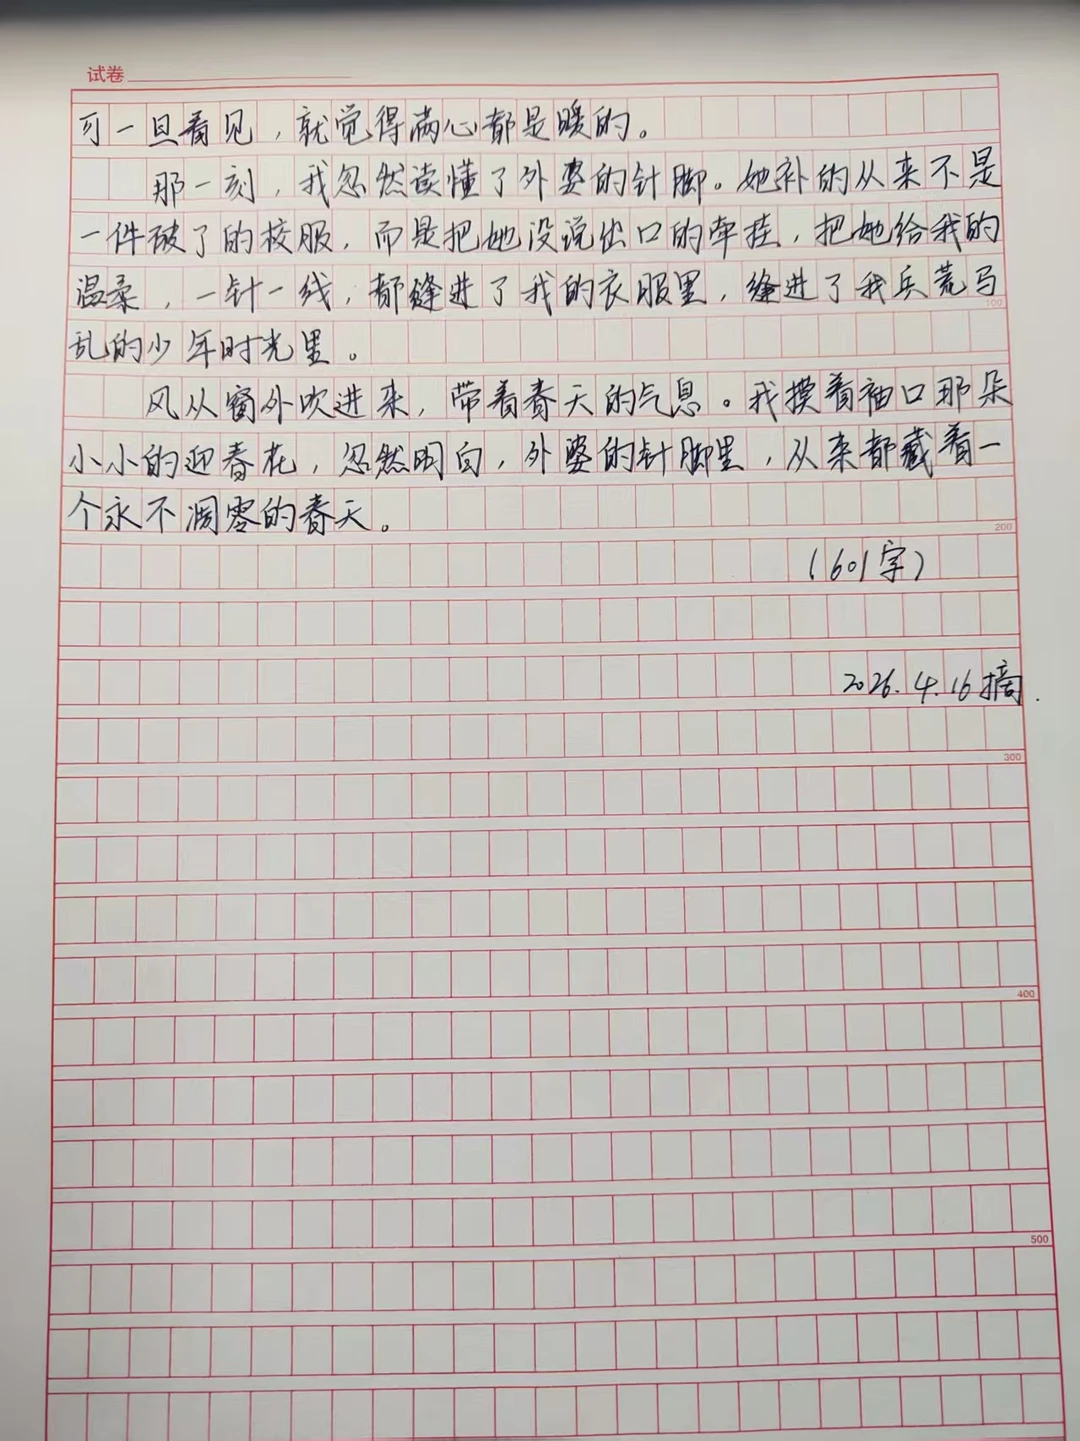 试卷
可一旦看见，就觉得满心都是暖的。
那一刻，我忽然读懂了外婆的针脚。她补的从来不是
一件破了的校服，而是把她没说出口的牵挂，把她给我的
温柔，一针一线，都缝进了我的衣服里，缝进了我兵荒马
100
乱的少年时光里。
风从窗外吹进来，带着春天的气息。我摸着袖口那朵
小小的迎春花，忽然明白，外婆的针脚里，从来都藏着一
个永不凋零的春天。
200
（601字）
2026.4.16摘.
300
400
500